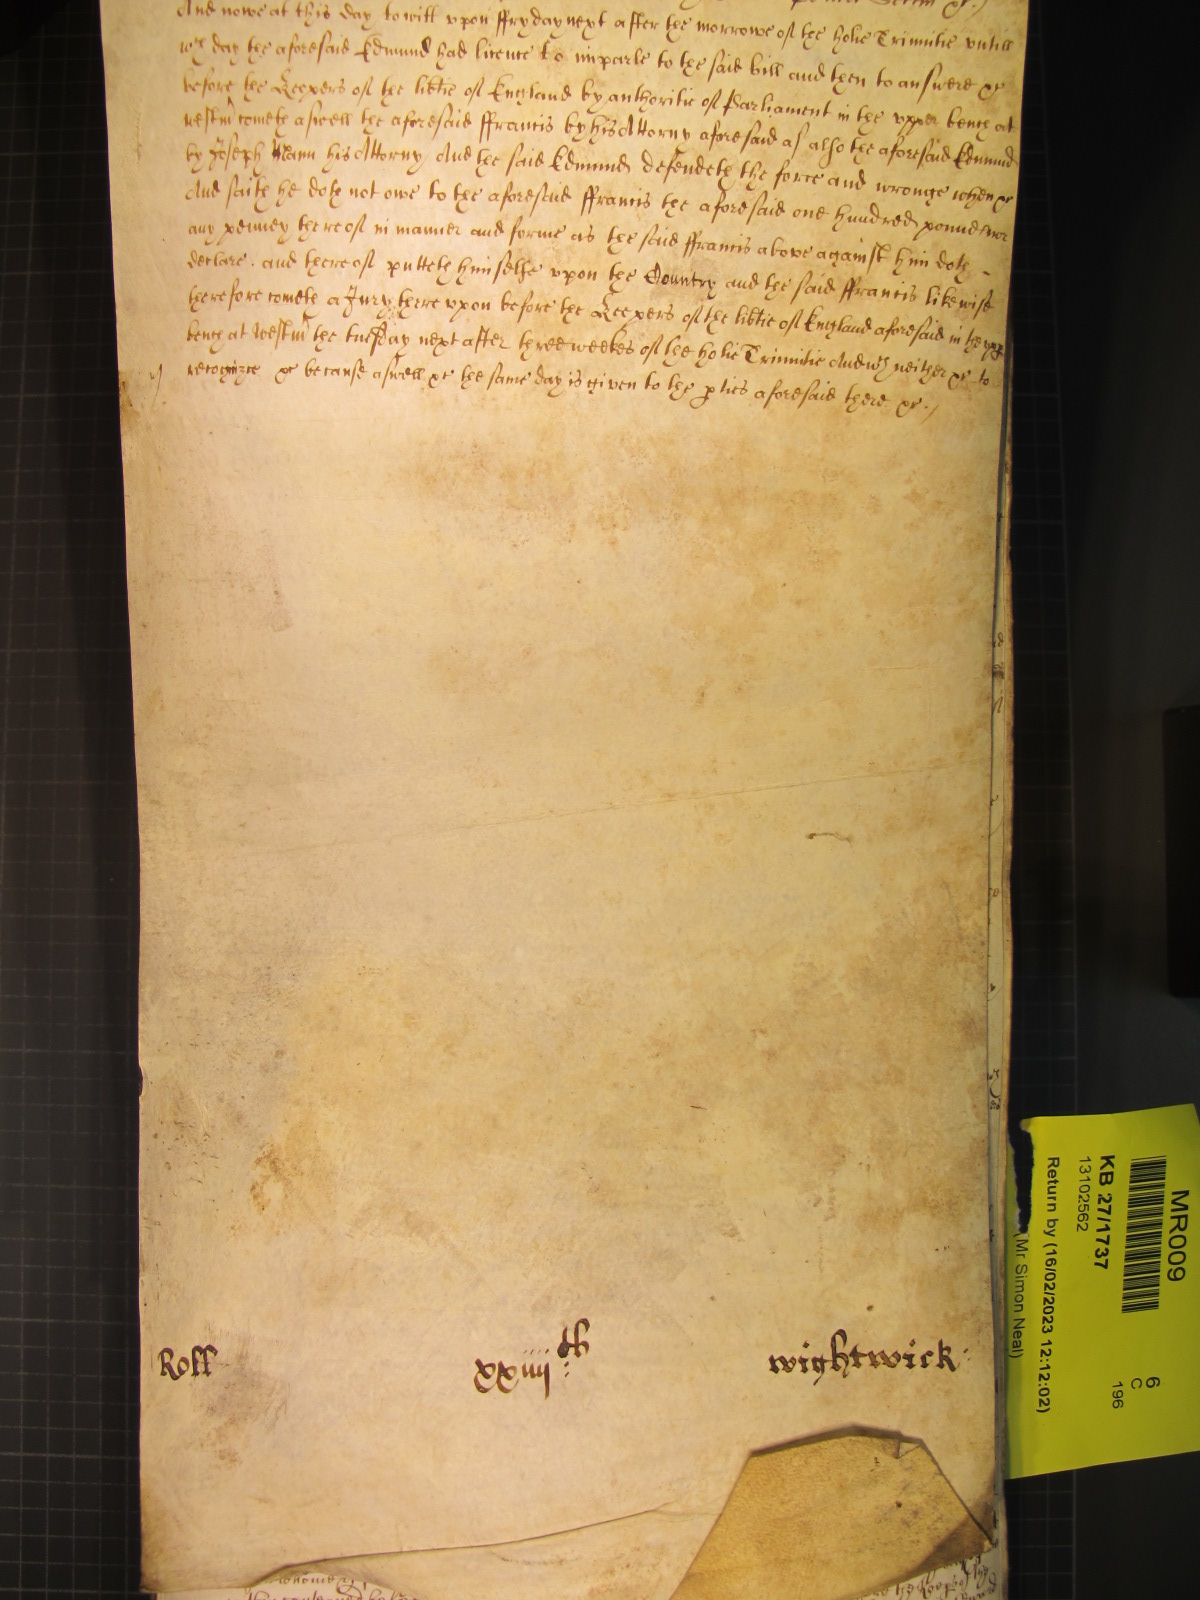 And nowe at this day to witt upon ffryday next after the morrowe of the holie Trinnitie untill
wch day the aforesaid Edmund had licence to imparle to the said bill and then to answere &c
before the Keepers of the lib'tie of England by authoritie of Parliament in the upper bench at
westm' cometh aswell the aforesaid ffrancis by his Attorny aforesaid as also the aforesaid Edmund
by Joseph Mann his Attorny And the said Edmund defendeth the force and wronge when &c
And saith he doth not owe to the aforesaid ffrancis the aforesaid one hundred pounds nor
any penney thereof in manner and forme as the said ffrancis above against him doth
declare. and thereof putteth himselfe upon the Country and the said ffrancis likewise
therefore cometh a Jury thereupon before the Keepers of the lib'tie of England aforesaid in the upp
bench at Westm' the tuesday next after three weekes of the holie Trinnitie And wch neither &c to
recognize &c because aswell &c the same day is given to the p'ties aforesaid there &c.
Roll xxiiijth wightwick
MR009
KB 27/1737
13102562
Return by (16/02/2023 12:12:02)
(Mr Simon Neal)
6
C
196